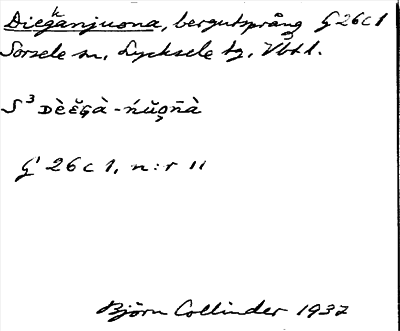 Diegǎnjuona, bergutsprång G 26 c 1
Sorsele sn, Lycksele tg, Vbtl.
S³ ᴅèĕɢà-ńŭo̧ñà
G¹ 26 c 1, n:r 11
Björn Collinder 1937